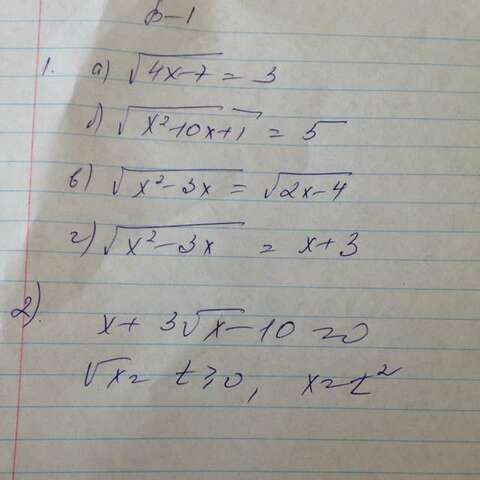 В-1
1. а) √4x-7 = 3
б) √x²-10x+1 = 5
в) √x²-3x = √2x-4
г) √x²-3x = x+3
2). x+3√x-10=0
√x= t≥0, x=t²